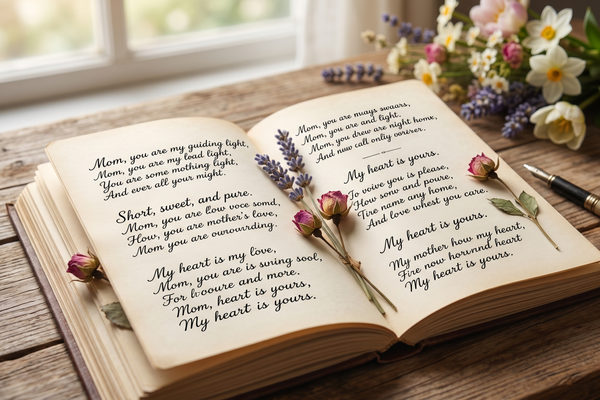 Mom, you are my guiding light,
Mom, you are my load light,
You are some nothing light,
And ever all your might.
Short, sweet, and pure.
Mom, you are low voce somd,
Flou, you are mother's lava,
Mom you are ounourding.
My heart is my love,
Mom, you are is swing sool,
For lvooure and more.
Mom, heart is yours,
My heart is yours.
Mom, you are muays swaors,
Mom, you are and light,
Mom, you drew are night home,
And now call only corirver.
My heart is yours.
To voive you is please,
How sonv and poure,
Tire name any home,
And love whest you care.
My heart is yours.
My mother how my heart,
Fire now hornrnd heart
My heart is yours.